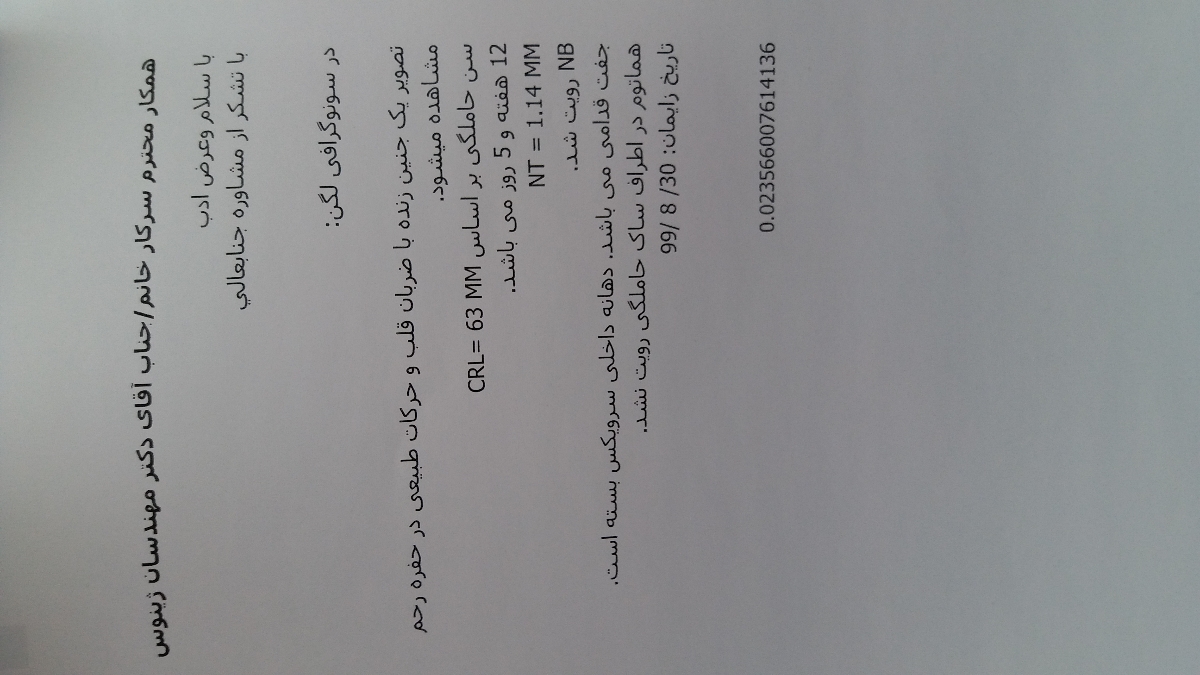 همکار محترم سرکار خانم/جناب آقای دکتر مهندسان ژینوس
با سلام وعرض ادب
با تشکر از مشاوره جنابعالي
در سونوگرافی لگن:
تصویر یک جنین زنده با ضربان قلب و حرکات طبیعی در حفره رحم
مشاهده میشود.
سن حاملگی بر اساس CRL= 63 MM
12 هفته و 5 روز می باشد.
NT = 1.14 MM
NB رویت شد.
جفت قدامی می باشد. دهانه داخلی سرویکس بسته است.
هماتوم در اطراف ساک حاملگی رویت نشد.
تاریخ زایمان: 30/ 8 /99
0.023566007614136